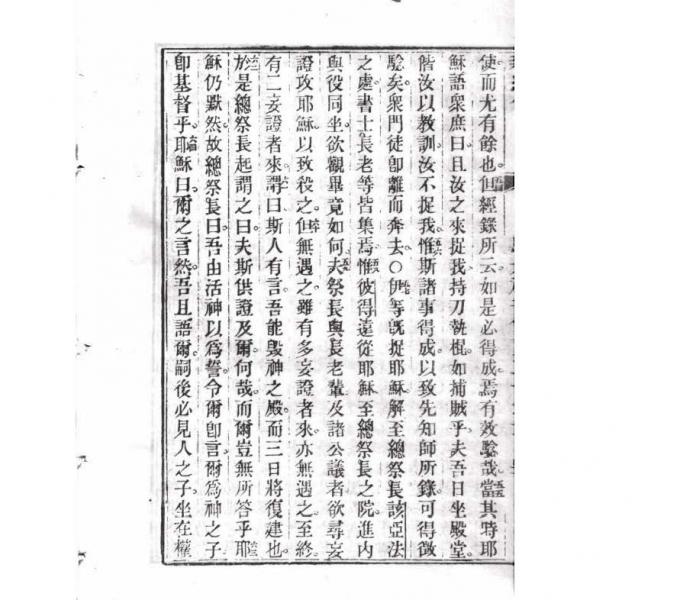 使而尤有餘也但經錄所云如是必得成焉有效驗哉當其時耶
穌語衆庶曰且汝之來捉我持刀執棍如捕賊乎夫吾日坐殿堂
偕汝以教訓汝不捉我惟斯諸事得成以致先知師所錄可得徵
驗矣衆門徒卽離而奔去○伊等旣捉耶穌解至總祭長該亞法
之處書士長老等皆集焉惟彼得遠從耶穌至總祭長之院進內
與役同坐欲觀畢竟如何夫祭長與長老輩及諸公議者欲尋妄
證攻耶穌以致殺之但無遇之雖有多妄證者來亦無遇之至終
有二妄證者來謂曰斯人有言吾能毀神之殿而三日將復建也
於是總祭長起謂之曰夫斯供證及爾何哉而爾豈無所答乎耶
穌仍默然故總祭長曰吾由活神以為誓令爾卽言爾為神之子
卽基督乎耶穌曰爾之言然吾且語爾嗣後必見人之子坐在權